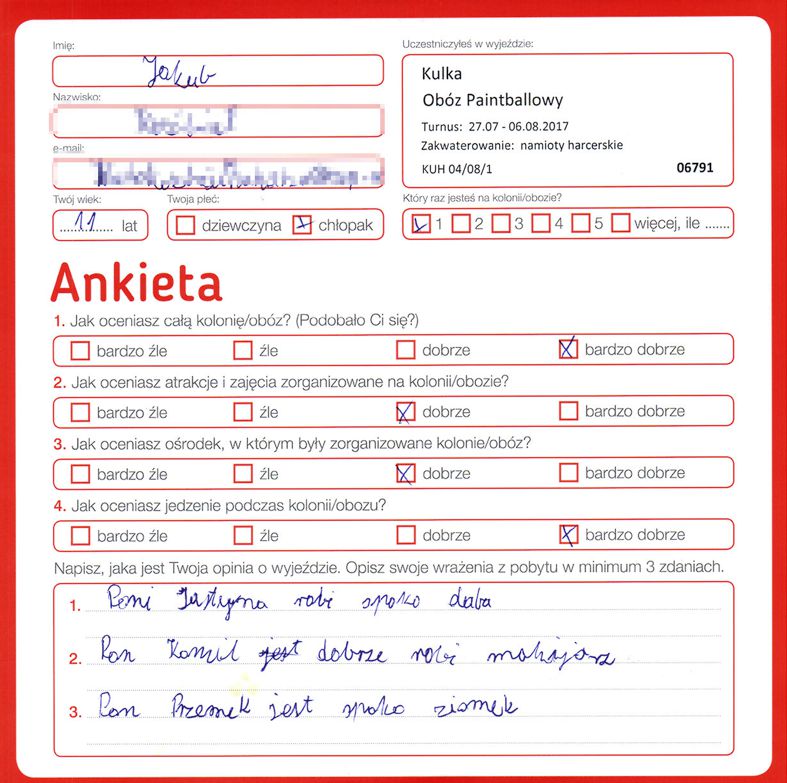 Imię:
Jakub
Nazwisko:
e-mail:
Twój wiek:
11 lat
Twoja płeć:
dziewczyna chłopak
Uczestniczyłeś w wyjeździe:
Kulka
Obóz Paintballowy
Turnus: 27.07 - 06.08.2017
Zakwaterowanie: namioty harcerskie
KUH 04/08/1 06791
Który raz jesteś na kolonii/obozie?
1 2 3 4 5 więcej, ile .......
Ankieta
1. Jak oceniasz całą kolonię/obóz? (Podobało Ci się?)
bardzo źle źle dobrze bardzo dobrze
2. Jak oceniasz atrakcje i zajęcia zorganizowane na kolonii/obozie?
bardzo źle źle dobrze bardzo dobrze
3. Jak oceniasz ośrodek, w którym były zorganizowane kolonie/obóz?
bardzo źle źle dobrze bardzo dobrze
4. Jak oceniasz jedzenie podczas kolonii/obozu?
bardzo źle źle dobrze bardzo dobrze
Napisz, jaka jest Twoja opinia o wyjeździe. Opisz swoje wrażenia z pobytu w minimum 3 zdaniach.
1. Pani Justyna robi spoko daba
2. Pan Kamil jest dobrze robi makijarz
3. Pan Przemek jest spoko ziomek